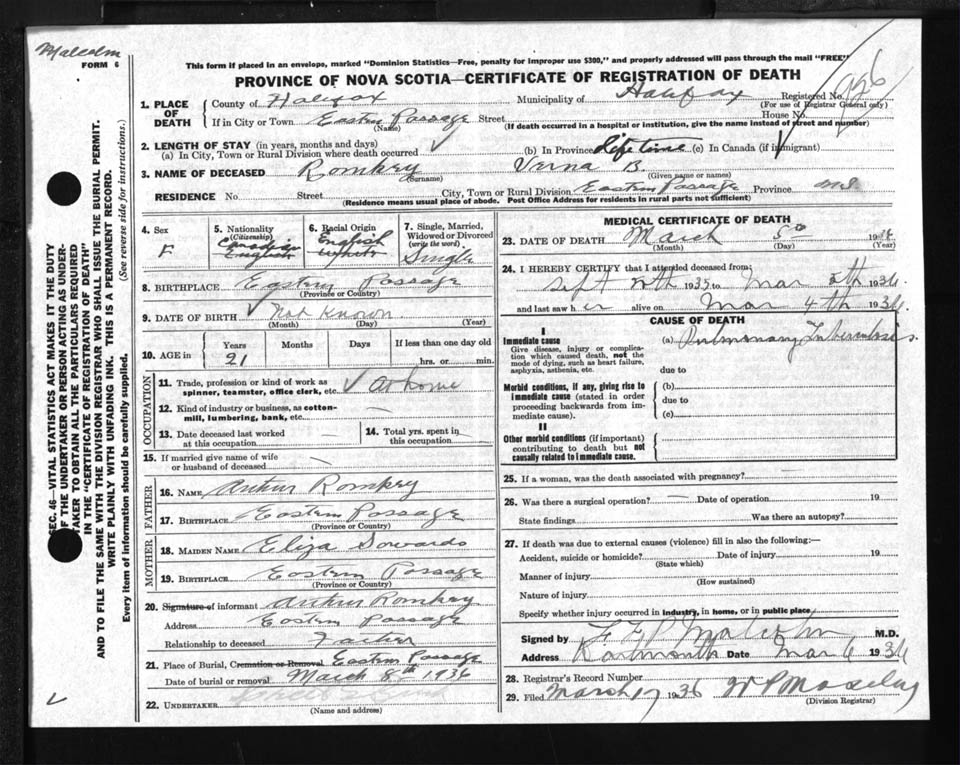 Malcolm
FORM 6
This form if placed in an envelope, marked "Dominion Statistics—Free, penalty for improper use $300," and properly addressed will pass through the mail "FREE"
PROVINCE OF NOVA SCOTIA—CERTIFICATE OF REGISTRATION OF DEATH
926
1. PLACE OF DEATH
County of Halifax Municipality of Halifax Registered No.
(For use of Registrar General only)
If in City or Town Eastern Passage Street House No.
(Name) (If death occurred in a hospital or institution, give the name instead of street and number)
2. LENGTH OF STAY (in years, months and days)
(a) In City, Town or Rural Division where death occurred ✓ (b) In Province life time (c) In Canada (if immigrant) ✓
3. NAME OF DECEASED Romkey Verna B.
(Surname) (Given name or names)
RESIDENCE No. Street City, Town or Rural Division Eastern Passage Province N.S.
(Residence means usual place of abode. Post Office Address for residents in rural parts not sufficient)
4. Sex
F
5. Nationality
(Citizenship)
Canadian
English
6. Racial Origin
English
White
7. Single, Married, Widowed or Divorced
(write the word)
Single
8. BIRTHPLACE Eastern Passage
(Province or Country)
9. DATE OF BIRTH ✓ Not Known
(Month) (Day) (Year)
10. AGE in
Years Months Days If less than one day
21 hrs. or min.
OCCUPATION
11. Trade, profession or kind of work as spinner, teamster, office clerk, etc. ✓ At home
12. Kind of industry or business, as cotton-mill, lumbering, bank, etc. —
13. Date deceased last worked at this occupation —
14. Total yrs. spent in this occupation —
15. If married give name of wife or husband of deceased
FATHER
16. NAME Arthur Romkey
17. BIRTHPLACE Eastern Passage
(Province or Country)
MOTHER
18. MAIDEN NAME Eliza Sowards
19. BIRTHPLACE Eastern Passage
(Province or Country)
20. Signature of informant Arthur Romkey
Address Eastern Passage
Relationship to deceased Father
21. Place of Burial, Cremation or Removal Eastern Passage
Date of burial or removal March 8th 1936
22. UNDERTAKER
(Name and address)
MEDICAL CERTIFICATE OF DEATH
23. DATE OF DEATH March 5th 1936
(Month) (Day) (Year)
24. I HEREBY CERTIFY that I attended deceased from
Sept 1935 to Mar 5th 1936
and last saw h er alive on Mar 4th 1936.
CAUSE OF DEATH
I
Immediate cause
Give disease, injury or complication which caused death, not the mode of dying, such as heart failure, asphyxia, asthenia, etc.
(a) Pulmonary Tuberculosis.
due to
Morbid conditions, if any, giving rise to immediate cause (stated in order proceeding backwards from immediate cause).
(b)
due to
(c)
II
Other morbid conditions (if important) contributing to death but not causally related to immediate cause.
25. If a woman, was the death associated with pregnancy?
26. Was there a surgical operation? — Date of operation 19
State findings Was there an autopsy?
27. If death was due to external causes (violence) fill in also the following:—
Accident, suicide or homicide? Date of injury 19
(State which)
Manner of injury
(How sustained)
Nature of injury
Specify whether injury occurred in industry, in home, or in public place
Signed by Malcolm M.D.
Address Dartmouth Date Mar 6 1936
28. Registrar's Record Number
29. Filed March 17 1936 W P Moseley
(Division Registrar)
SEC. 46—VITAL STATISTICS ACT MAKES IT THE DUTY
OF THE UNDERTAKER OR PERSON ACTING AS UNDER-
TAKER TO OBTAIN ALL THE PARTICULARS REQUIRED
IN THE "CERTIFICATE OF REGISTRATION OF DEATH"
AND TO FILE THE SAME WITH THE DIVISION REGISTRAR WHO SHALL ISSUE THE BURIAL PERMIT.
WRITE PLAINLY WITH UNFADING INK. THIS IS A PERMANENT RECORD.
Every item of information should be carefully supplied. (See reverse side for instructions.)